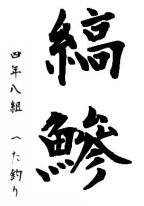 縞鯵
四年八組 へた釣り